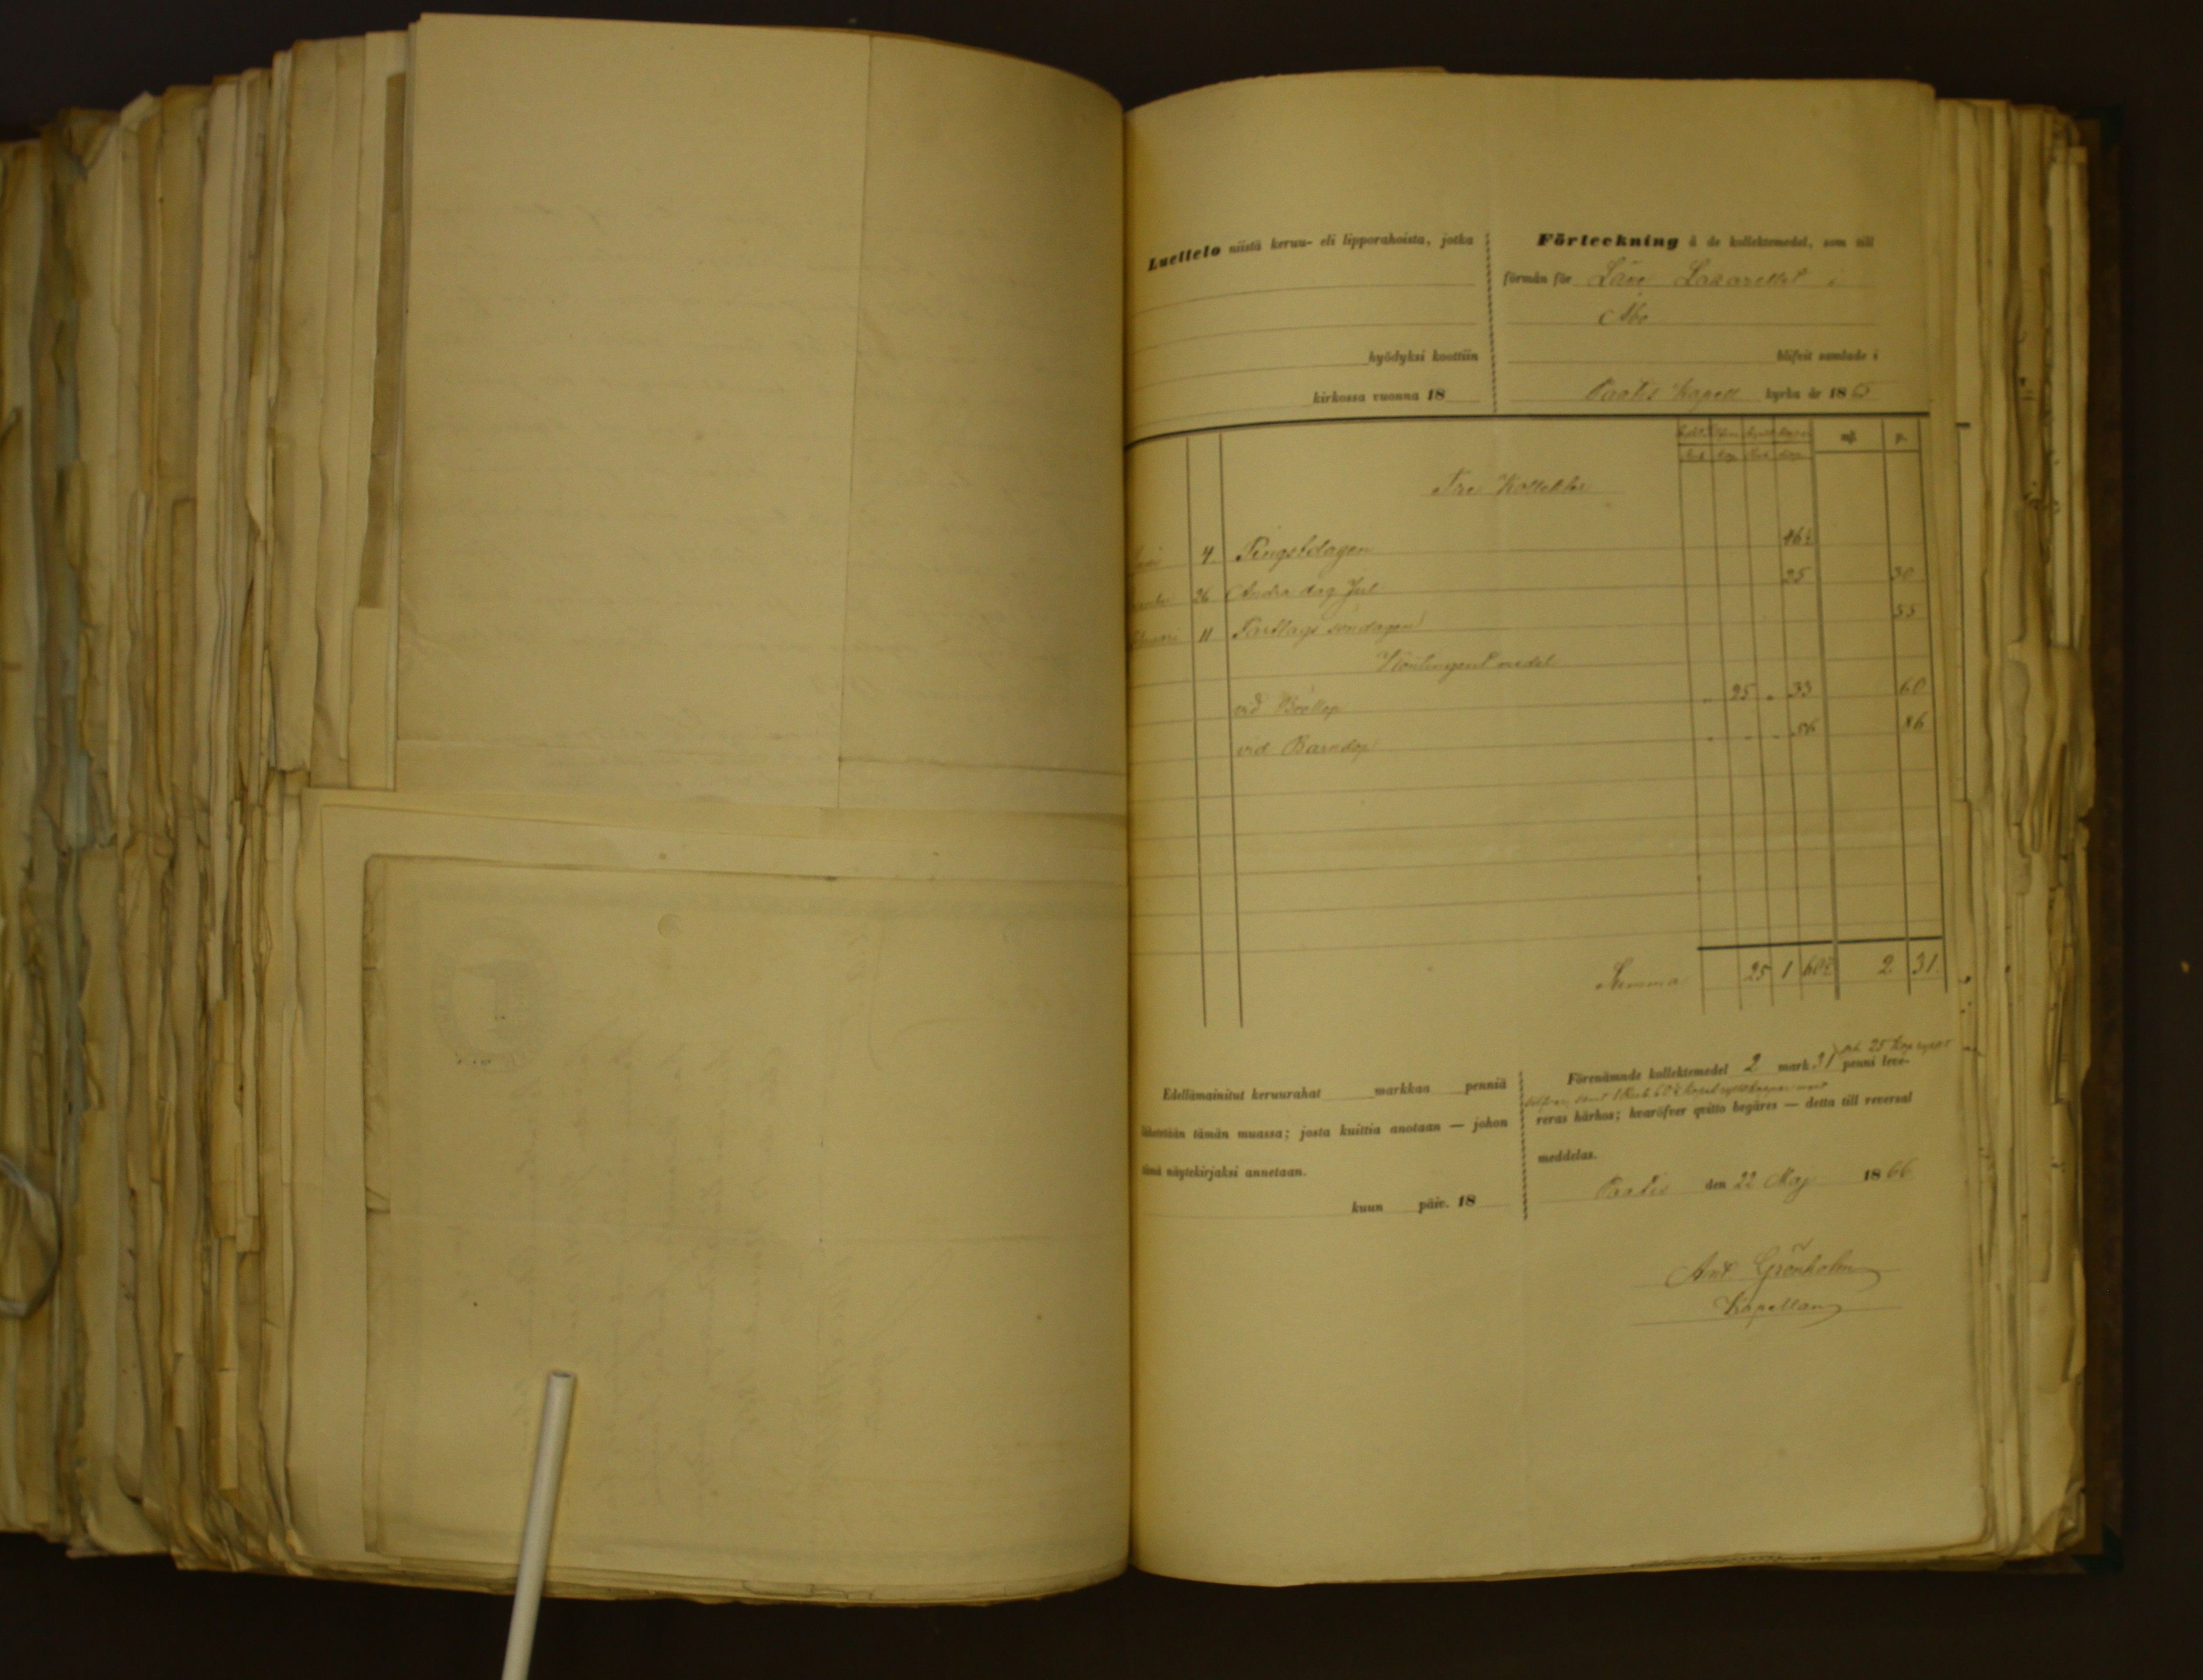 Luettelo niistä keruu- eli lipporahoista, jotka
hyödyksi koottiin
kirkossa vuonna 18
Förteckning å de kollektemedel, som till
förmån för Läns Lazarettet i
Åbo
blifvit samlade i
Paatis Kapell kyrka år 1865
mk. p.
Tre Kollekter
4. Pingstdagen 46½
26 Andra dag Jul 25 30
11 Fastlags söndagen 55
Kontingent medel
vid Bröllop " 25 " 33 60
vid Barndop " " " 56 86
Summa 25 1 60½ 2 31.
Edellämainitut keruurahat markkaa penniä
lähetetään tämän muassa; josta kuittia anotaan — johon
tämä näytekirjaksi annetaan.
kuun päiv. 18
och 25 Kop
Förenämnde kollektemedel 2 mark 31 penni leve-
samt 1 Rub. 60½
reras härhos; hvaröfver qvitto begäres — detta till reversal
meddelas.
Paatis den 22 Maj 1866
Ant Grönholm
Kapellan